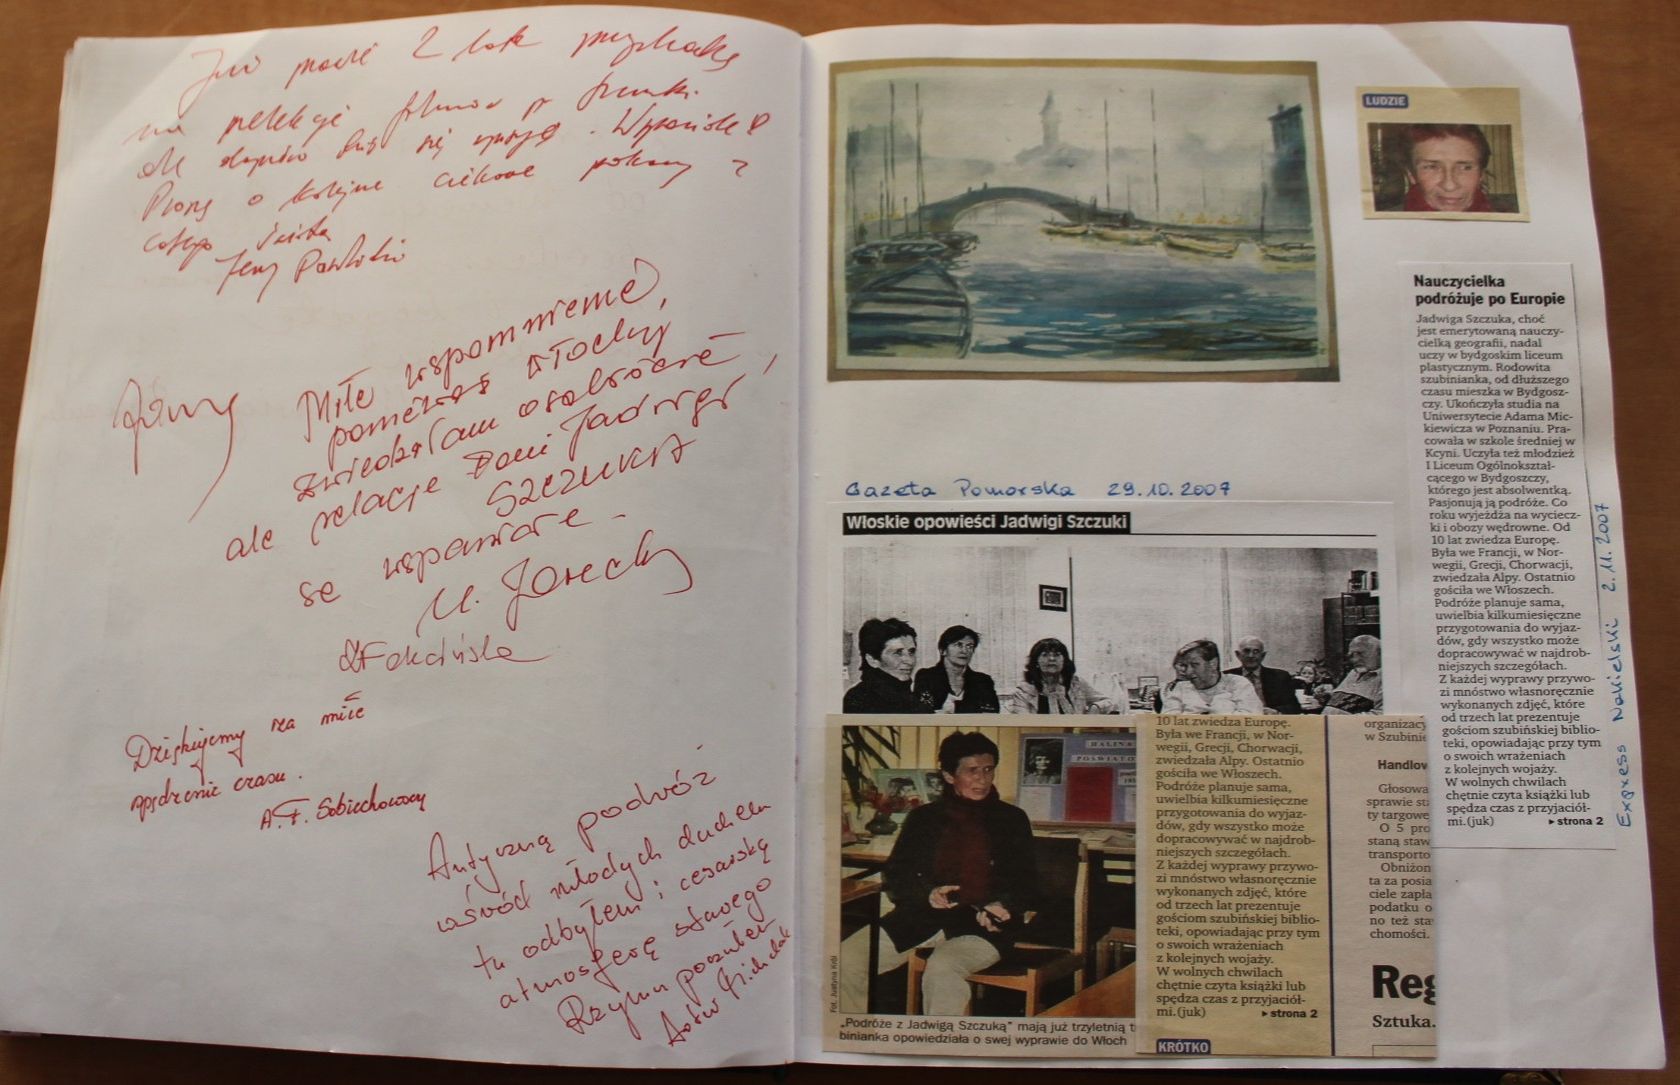 Już
2 lat
na prelekcje
się
. Wspaniale
Proszę o kolejne ciekawe pokazy z
całego świata
Miłe wspomnienie,
ponieważ Włochy
zwiedzałam osobiście –
ale relacje Pani Jadwigi,
Szczuki
są wspaniałe –
Dziękujemy za miłe
spędzenie czasu.
A.F. Sobiechowscy
Antyczną podróż
wśród młodych duchem
tu odbyłem i cesarską
atmosferę starego
Rzymu poczułem
LUDZIE
Nauczycielka
podróżuje po Europie
Jadwiga Szczuka, choć
jest emerytowaną nauczy-
cielką geografii, nadal
uczy w bydgoskim liceum
plastycznym. Rodowita
szubinianka, od dłuższego
czasu mieszka w Bydgosz-
czy. Ukończyła studia na
Uniwersytecie Adama Mic-
kiewicza w Poznaniu. Pra-
cowała w szkole średniej w
Kcyni. Uczyła też młodzież
I Liceum Ogólnokształ-
cącego w Bydgoszczy,
którego jest absolwentką.
Pasjonują ją podróże. Co
roku wyjeżdża na wyciecz-
ki i obozy wędrowne. Od
10 lat zwiedza Europę.
Była we Francji, w Nor-
wegii, Grecji, Chorwacji,
zwiedzała Alpy. Ostatnio
gościła we Włoszech.
Podróże planuje sama,
uwielbia kilkumiesięczne
przygotowania do wyjaz-
dów, gdy wszystko może
dopracowywać w najdrob-
niejszych szczegółach.
Z każdej wyprawy przywo-
zi mnóstwo własnoręcznie
wykonanych zdjęć, które
od trzech lat prezentuje
gościom szubińskiej biblio-
teki, opowiadając przy tym
o swoich wrażeniach
z kolejnych wojaży.
W wolnych chwilach
chętnie czyta książki lub
spędza czas z przyjaciół-
mi.(juk) ▸ strona 2
Express Nakielski 2.11.2007
Gazeta Pomorska 29.10.2007
Włoskie opowieści Jadwigi Szczuki
HALINA
POŚWIATO
Fot. Justyna Król
„Podróże z Jadwigą Szczuką” mają już trzyletnią t
binianka opowiedziała o swej wyprawie do Włoch
10 lat zwiedza Europę.
Była we Francji, w Nor-
wegii, Grecji, Chorwacji,
zwiedzała Alpy. Ostatnio
gościła we Włoszech.
Podróże planuje sama,
uwielbia kilkumiesięczne
przygotowania do wyjaz-
dów, gdy wszystko może
dopracowywać w najdrob-
niejszych szczegółach.
Z każdej wyprawy przywo-
zi mnóstwo własnoręcznie
wykonanych zdjęć, które
od trzech lat prezentuje
gościom szubińskiej biblio-
teki, opowiadając przy tym
o swoich wrażeniach
z kolejnych wojaży.
W wolnych chwilach
chętnie czyta książki lub
spędza czas z przyjaciół-
mi.(juk) ▸ strona 2
KRÓTKO
organizacy
w Szubinie
Handlow
Głosowa
sprawie sta
ty targowe
O 5 pro
staną staw
transporto
Obniżon
ta za posia
ciele zapła
podatku o
no też sta
chomości.
Reg
Sztuka.